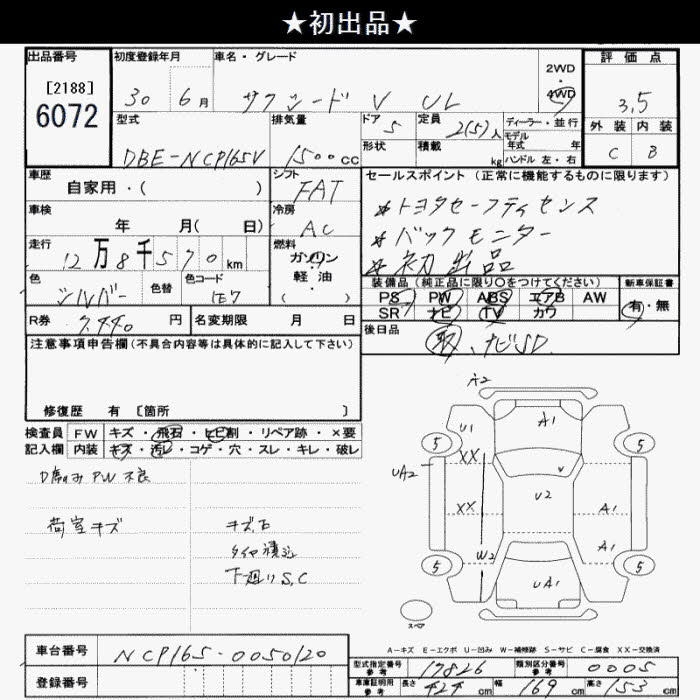 ★初出品★
出品番号 初度登録年月 車名・グレード 2WD 評価点
[2188] ・
6072 30 6月 サクシード V UL 4WD 3.5
型式 排気量 ドア 5 定員 2(5)人 ディーラー・並行 外装 内装
DBE-NCP165V 1500cc 形状 積載 kg モデル年式 年 C B
ハンドル 左・右
車歴 シフト セールスポイント(正常に機能するものに限ります)
自家用・( ) FAT
車検 冷房 ＊トヨタセーフティセンス
年 月( 日) AC ＊バックモニター
走行 燃料 ＊初出品
12万8千570km ガソリン
色 色替 色コード 軽油・ 装備品(純正品に限り○をつけてください) 新車保証書
シルバー 1E7 ( ) PS PW ABS エアB AW 有・無
R券 7,440円 名変期限 月 日 SR ナビ TV カワ
注意事項申告欄(不具合内容等は具体的に記入して下さい) 後日品
取、ナビSD
修復歴 有 [箇所 ]
検査員 FW キズ・飛石・ヒビ割・リペア跡・×要
記入欄 内装 キズ・汚レ・コゲ・穴・スレ・キレ・破レ
PW不良
荷室キズ キズ石
タイヤ積込
下廻りS,C
A2
A1
U1
5 5
XX
UA2
XX U2 A1
W2 A1
5 UA1 5
スペア
A-キズ E-エクボ U-凹み W-補修跡 S-サビ C-腐食 XX-交換済
車台番号 NCP165-0050120
型式指定番号 参考 17826 類別区分番号 参考 0005
登録番号
車庫証明用 参考 長さ 424cm 幅 169cm 高さ 153cm